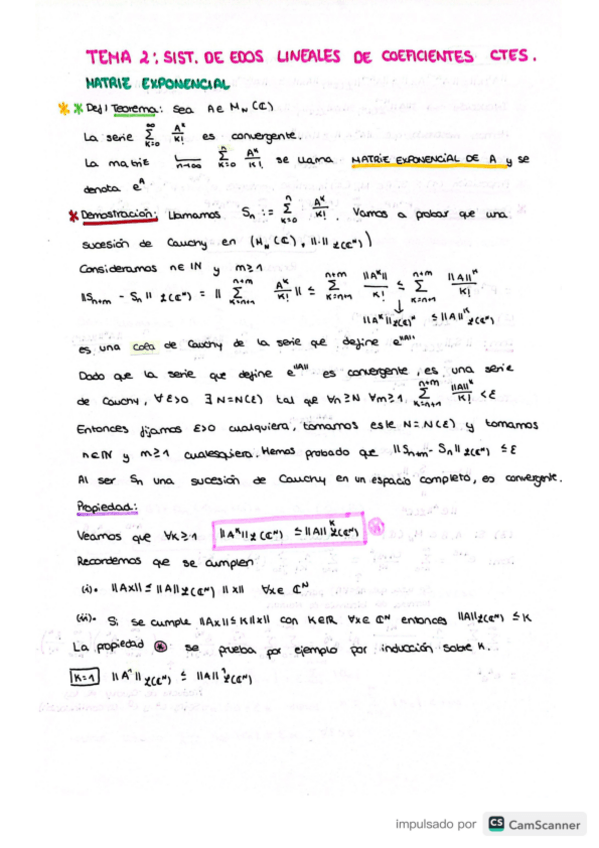 TEMA 2: SIST. DE EDOS LINEALES DE COEFICIENTES CTES.
MATRIZ EXPONENCIAL
Def / Teorema: Sea A ∈ M_N (ℂ)
La serie ∑_{k=0}^{∞} A^k/k! es convergente.
La matriz lim_{n→∞} ∑_{k=0}^{n} A^k/k! se llama MATRIZ EXPONENCIAL DE A y se
denota e^A
Demostración: Llamamos S_n := ∑_{k=0}^{n} A^k/k! . Vamos a probar que una
sucesión de Cauchy en (M_N (ℂ), ||·||_{L(ℂ^N)})
Consideramos n ∈ IN y m ≥ 1
||S_{n+m} - S_n||_{L(ℂ^N)} = || ∑_{k=n+1}^{n+m} A^k/k! || ≤ ∑_{k=n+1}^{n+m} ||A^k||/k! ≤ ∑_{k=n+1}^{n+m} ||A||^k/k!
||A^k||_{L(ℂ)^N} ≤ ||A||^k_{L(ℂ^N)}
es una cola de Cauchy de la serie que define e^{||A||}
Dado que la serie que define e^{||A||} es convergente, es una serie
de Cauchy, ∀ε>0 ∃N=N(ε) tal que ∀n≥N ∀m≥1 ∑_{k=n+1}^{n+m} ||A||^k/k! < ε
Entonces fijamos ε>0 cualquiera, tomamos este N=N(ε) y tomamos
n∈IN y m≥1 cualesquiera. Hemos probado que ||S_{n+m} - S_n||_{L(ℂ^N)} ≤ ε
Al ser S_n una sucesión de Cauchy en un espacio completo, es convergente.
Propiedad:
Veamos que ∀k≥1 ||A^k||_{L(ℂ^N)} ≤ ||A||^k_{L(ℂ^N)} *
Recordemos que se cumplen
(i). ||Ax|| ≤ ||A||_{L(ℂ^N)} ||x|| ∀x∈ ℂ^N
(ii). Si se cumple ||Ax|| ≤ K||x|| con K∈IR, ∀x∈ ℂ^N entonces ||A||_{L(ℂ^N)} ≤ K
La propiedad * se prueba por ejemplo por inducción sobre K.
K=1 ||A^1||_{L(ℂ^N)} ≤ ||A||^1_{L(ℂ^N)}
impulsado por CS CamScanner